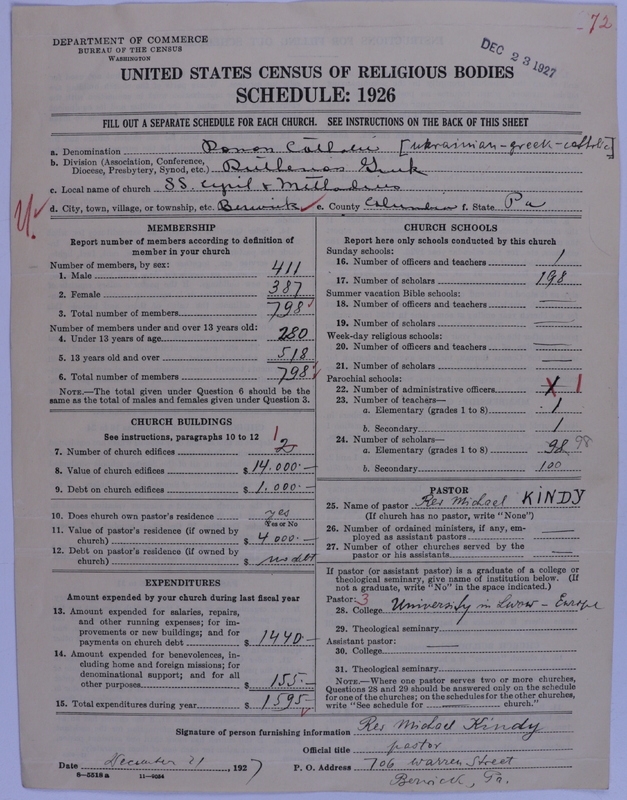 72
DEC 23 1927
DEPARTMENT OF COMMERCE
BUREAU OF THE CENSUS
WASHINGTON
UNITED STATES CENSUS OF RELIGIOUS BODIES
SCHEDULE: 1926
FILL OUT A SEPARATE SCHEDULE FOR EACH CHURCH. SEE INSTRUCTIONS ON THE BACK OF THIS SHEET
a. Denomination Roman Catholic [ukrainian-greek-catholic]
b. Division (Association, Conference, Diocese, Presbytery, Synod, etc.) Ruthenian Greek
c. Local name of church SS. Cyril & Methodius
d. City, town, village, or township, etc. Berwick e. County Columbia f. State Pa
MEMBERSHIP
Report number of members according to definition of member in your church
Number of members, by sex:
1. Male 411
2. Female 387
3. Total number of members 798
Number of members under and over 13 years old:
4. Under 13 years of age 280
5. 13 years old and over 518
6. Total number of members 798
NOTE.—The total given under Question 6 should be the same as the total of males and females given under Question 3.
CHURCH BUILDINGS
See instructions, paragraphs 10 to 12
7. Number of church edifices 2 1
8. Value of church edifices $ 14.000.—
9. Debt on church edifices $ 1.000.—
10. Does church own pastor's residence yes
Yes or No
11. Value of pastor's residence (if owned by church) $ 4000.—
12. Debt on pastor's residence (if owned by church) $ no debt
EXPENDITURES
Amount expended by your church during last fiscal year
13. Amount expended for salaries, repairs, and other running expenses; for improvements or new buildings; and for payments on church debt $ 1440.—
14. Amount expended for benevolences, including home and foreign missions; for denominational support; and for all other purposes $ 155.—
15. Total expenditures during year $ 1595—
CHURCH SCHOOLS
Report here only schools conducted by this church
Sunday schools:
16. Number of officers and teachers 1
17. Number of scholars 198
Summer vacation Bible schools:
18. Number of officers and teachers —
19. Number of scholars —
Week-day religious schools:
20. Number of officers and teachers —
21. Number of scholars —
Parochial schools:
22. Number of administrative officers 1
23. Number of teachers—
a. Elementary (grades 1 to 8) 1
b. Secondary 1
24. Number of scholars—
a. Elementary (grades 1 to 8) 98 98
b. Secondary 100
PASTOR
25. Name of pastor Rev Michael KINDY
(If church has no pastor, write "None")
26. Number of ordained ministers, if any, employed as assistant pastors —
27. Number of other churches served by the pastor or his assistants —
If pastor (or assistant pastor) is a graduate of a college or theological seminary, give name of institution below. (If not a graduate, write "No" in the space indicated.)
Pastor: 3
28. College University in Lwow - Europe
29. Theological seminary
Assistant pastor:
30. College —
31. Theological seminary
NOTE.—Where one pastor serves two or more churches, Questions 28 and 29 should be answered only on the schedule for one of the churches; on the schedules for the other churches, write "See schedule for ———— church."
Signature of person furnishing information Rev Michael Kindy
Official title pastor
Date December 21, 1927 P. O. Address 706 Warren Street
Berwick, Pa.
8—5518 a 11—9054